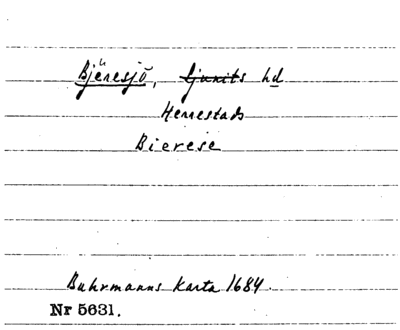 Bjäresjö, Ljunits hd
Herrestads
Bierese
Buhrmanns Karta 1684.
Nr 5631.